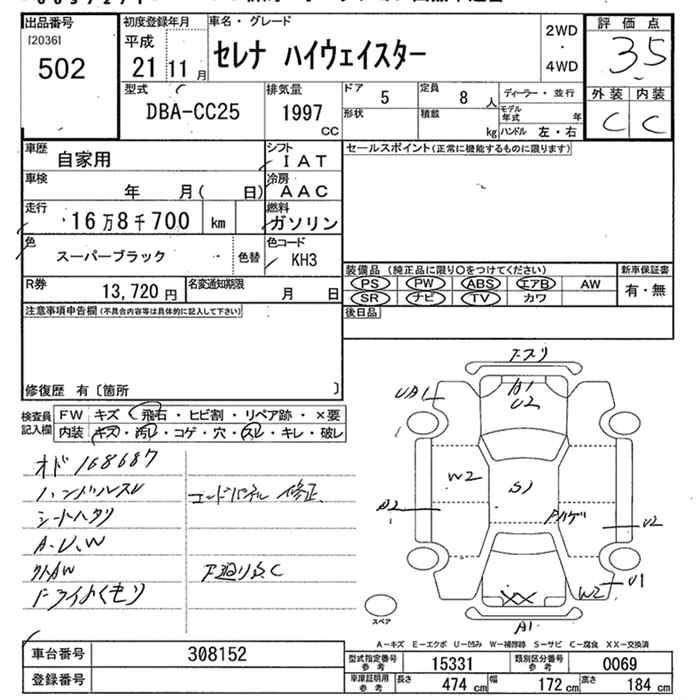 出品番号
[2036]
502
初度登録年月
平成
21 11 月
車名・グレード
セレナ ハイウェイスター
2WD
・
4WD
評価点
3.5
外装 内装
C C
型式
DBA-CC25
排気量
1997
CC
ドア
5
定員
8 人
ディーラー・並行
形状
積載
kg
モデル年式
年
ハンドル 左・右
車歴
自家用
シフト
IAT
セールスポイント(正常に機能するものに限ります)
車検
年 月( 日)
冷房
AAC
走行
16万8千700 km
燃料
ガソリン
色
スーパーブラック
色替
色コード
KH3
R券
13,720 円
名変通知期限
月 日
装備品 (純正品に限り○をつけてください)
PS PW ABS エアB AW
SR ナビ TV カワ
新車保証書
有・無
後日品
注意事項申告欄(不具合内容等は具体的に記入して下さい)
修復歴 有〔箇所 〕
検査員記入欄
FW キズ・飛石・ヒビ割・リペア跡・×要
内装 キズ・汚レ・コゲ・穴・スレ・キレ・破レ
オド 168687
ハンドルスレ
シートヘタリ
A.U.W
コードパネル 修正
下廻りS.C
UA1
A1
U2
W2
S1
A2
U2
U1
W2
XX
A1
スペア
A-キズ E-エクボ U-凹み W-補修跡 S-サビ C-腐食 XX-交換済
車台番号
308152
登録番号
型式指定番号
参考
15331
類別区分番号
参考
0069
車庫証明用
参考
長さ
474 cm
幅
172 cm
高さ
184 cm